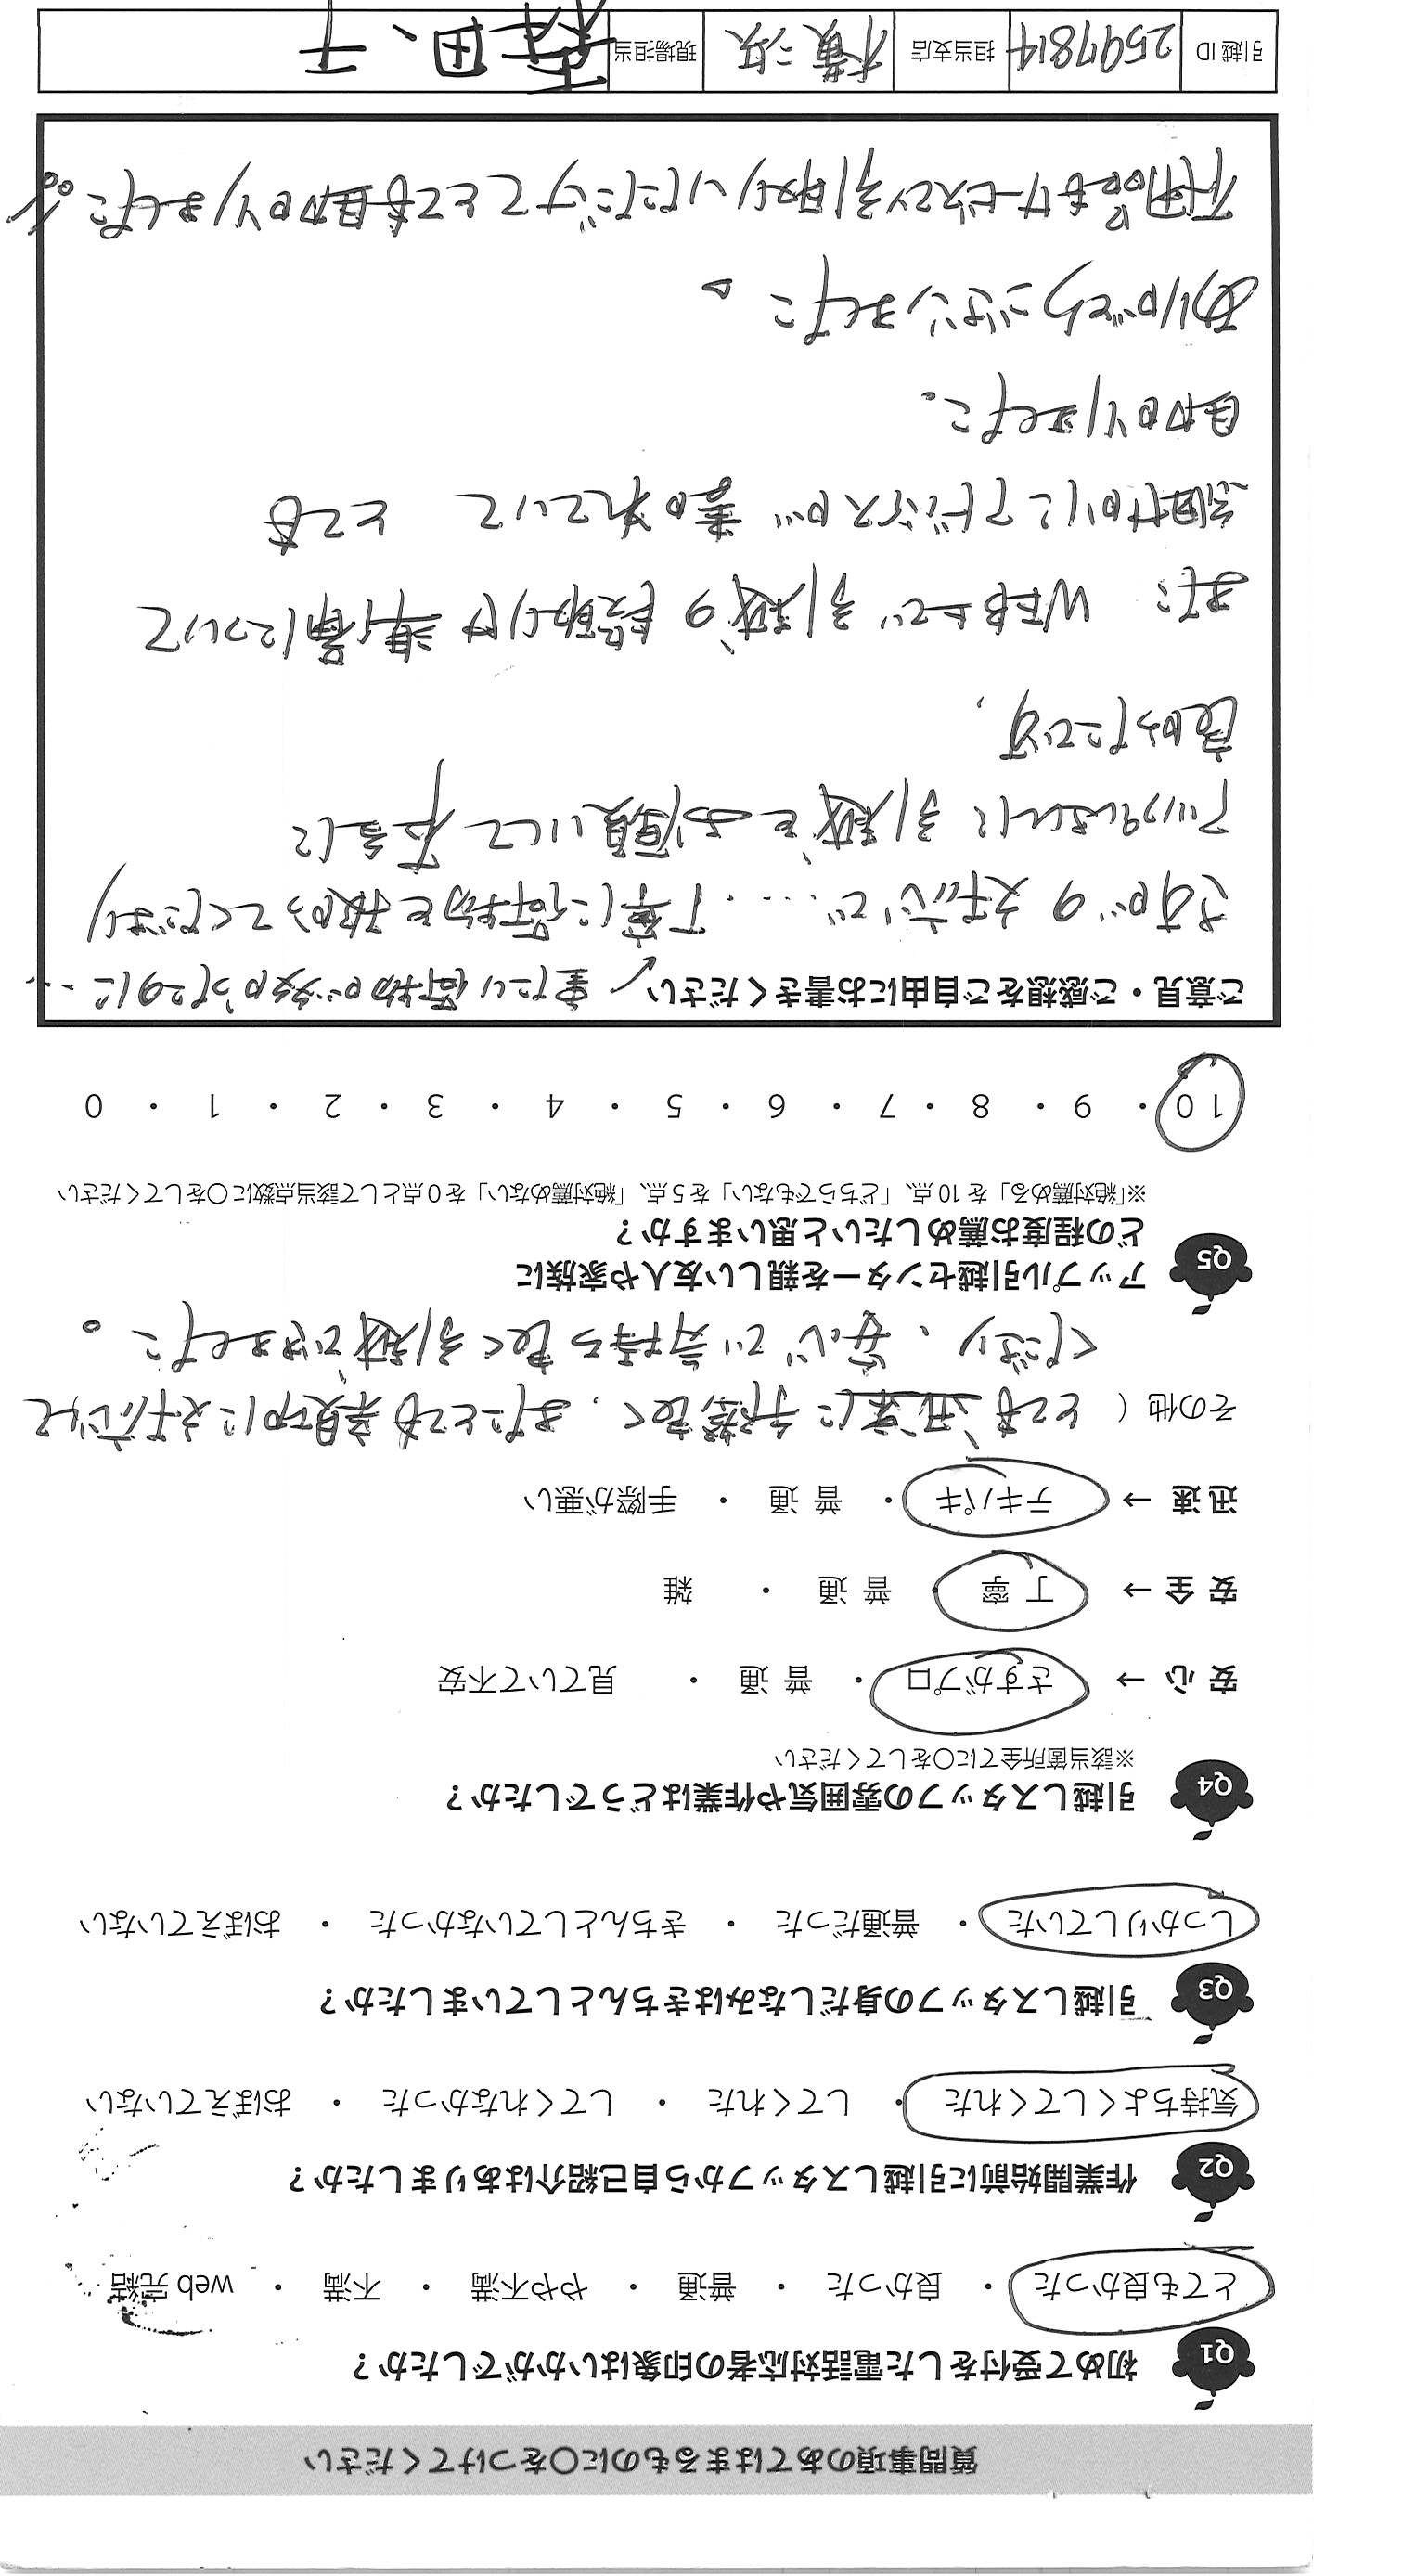 質問事項のあてはまるものに○をつけてください
Q1 初めて受付をした電話対応者の印象はいかがでしたか？
とても良かった ・ 良かった ・ 普通 ・ やや不満 ・ 不満 ・ web 完結
Q2 作業開始前に引越しスタッフから自己紹介はありましたか？
気持ちよくしてくれた ・ してくれた ・ してくれなかった ・ おぼえていない
Q3 引越しスタッフの身だしなみはきちんとしていましたか？
しっかりしていた ・ 普通だった ・ きちんとしていなかった ・ おぼえていない
Q4 引越しスタッフの雰囲気や作業はどうでしたか？
※該当箇所全てに○をしてください
安 心 → さすがプロ ・ 普 通 ・ 見ていて不安
安 全 → 丁 寧 ・ 普 通 ・ 雑
迅 速 → テキパキ ・ 普 通 ・ 手際が悪い
その他（ とても迅速に手際良く、またとても親切に対応して
くださり、安心で気持ち良く引越できました。
Q5 アップル引越センターを親しい友人や家族に
どの程度お薦めしたいと思いますか？
※「絶対薦める」を 10 点、「どちらでもない」を 5 点、「絶対薦めない」を 0 点として該当点数に○をしてください
10 ・ 9 ・ 8 ・ 7 ・ 6 ・ 5 ・ 4 ・ 3 ・ 2 ・ 1 ・ 0
ご意見・ご感想をご自由にお書きください 重たい荷物が多かったのに…
さすがの対応で…..丁寧に荷物を扱ってくださり
アップルさんに引越をお願いして本当に
良かったです。
また WEB上で引越の段取りや準備について
細やかにアドバイスが書かれていて とても
助かりました。
ありがとうございました。
不用品もサービスで引取りいただけてとても助かりました。
引越 ID 2597814 担当支店 横浜 現場担当 森田、千